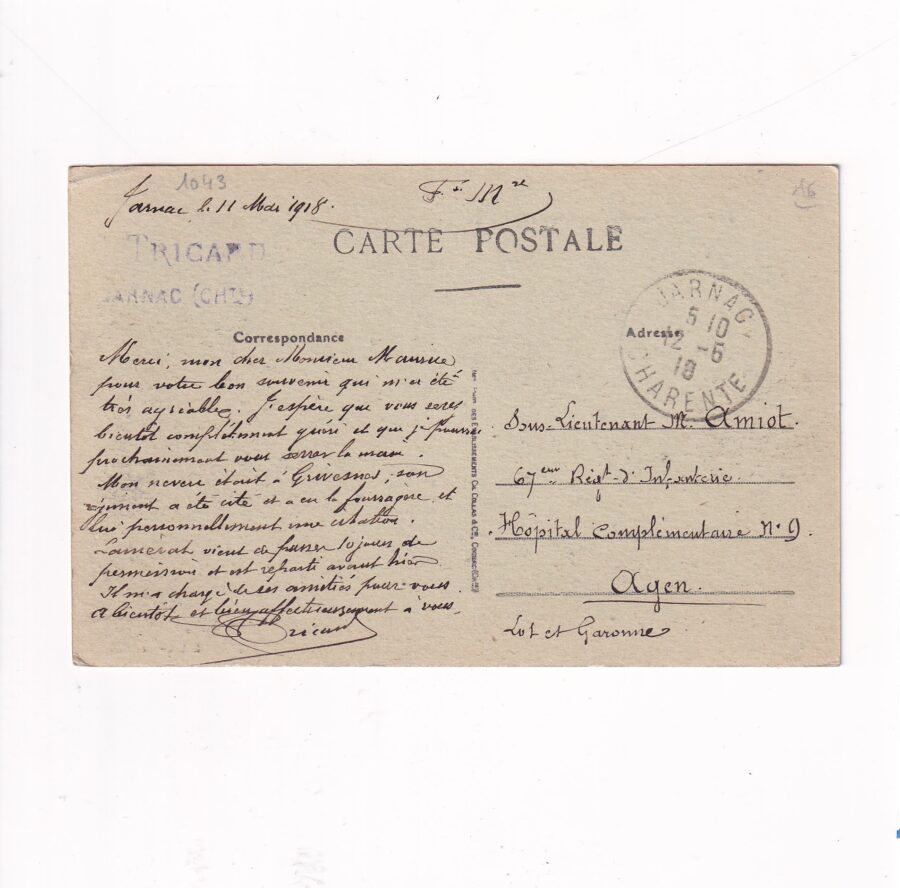 1043
Jarnac le 11 Mai 1918.
F. M.re
A6
CARTE POSTALE
TRICARD
JARNAC (CHTE)
JARNAC
5 10
12 -5
18
CHARENTE
Correspondance
Adresse
Merci, mon cher Monsieur Maurice
pour votre bon souvenir qui m'a été
très agréable. J'espère que vous serez
bientôt complètement guéri et que je pourrai
prochainement vous serrer la main.
Mon neveu était à Grivesnes, son
régiment a été cité et a eu la fourragère et
lui personnellement une citation.
vient de passer 10 jours de
permission et est reparti avant hier
Il m'a chargé de ses amitiés pour vous.
A bientôt et bien affectueusement à vous.
Tricard
DES ETABLISSEMENTS CH. COLLAS & Cie, COGNAC
Sous-Lieutenant M. Amiot.
67eme Régt d'Infanterie.
Hôpital Complémentaire N° 9.
Agen.
Lot et Garonne